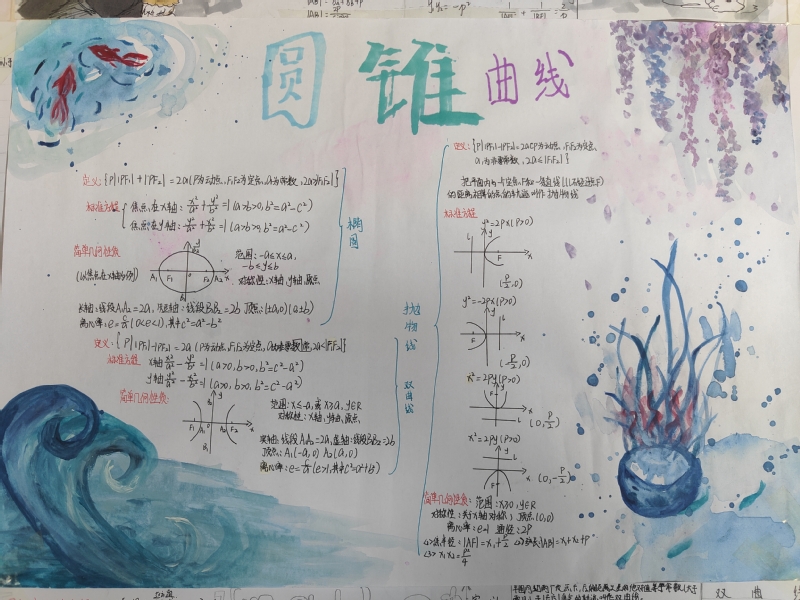 圆锥曲线
定义:{P||PF₁|+|PF₂|=2a(P为动点,F₁F₂为定点,a为常数,2a>|F₁F₂|}
标准方程
焦点在x轴:x²/a²+y²/b²=1(a>b>0,b²=a²-c²)
焦点在y轴:y²/a²+x²/b²=1(a>b>0,b²=a²-c²)
椭圆
简单几何性质
(以焦点在x轴为例)
y
B₂
A₁ F₁ 0 F₂ A₂ x
B₁
范围:-a≤x≤a,
-b≤y≤b
对称性:x轴,y轴,原点
长轴:线段A₁A₂=2a,短轴:线段B₁B₂=2b 顶点:(±a,0)
离心率:e=c/a(0<e<1),其中c²=a²-b²
定义:{P||PF₁|-|PF₂|=2a(P为动点,F₁F₂为定点,2a<|F₁F₂|}
标准方程
x轴x²/a²-y²/b²=1(a>0,b>0,b²=c²-a²)
y轴y²/a²-x²/b²=1(a>0,b>0,b²=c²-a²)
双曲线
简单几何性质:
范围:x≤-a,或x≥a,y∈R
对称性:x轴,y轴,原点
实轴:线段A₁A₂=2a,虚轴:线段B₁B₂=2b
顶点:A₁(-a,0) A₂(a,0)
离心率:e=c/a(e>1),其中c²=a²+b²
抛物线
定义:{P||PF₁|-|PF₂|=2a(P为动点,F₁F₂为定点,
a,为常数,2a≤|F₁F₂|}
把平面内与一个定点F和一条直线l(l不经过点F)
的距离相等的点的轨迹叫作抛物线
标准方程
y²=2px(p>0)
l y F x
(p/2,0)
y²=-2px(p>0)
y l F x
(-p/2,0)
x²=2py(p>0)
y F x l
(0,p/2)
x²=2py(p>0)
y l F x
(0,-p/2)
简单几何性质:范围:x≥0,y∈R
对称性:关于x轴对称;顶点(0,0)
离心率:e=1 通径:2P
<1>焦半径:|AF|=x₁+p/2 <2>弦长|AB|=x₁+x₂+P
<3>x₁x₂=p²/4
双曲